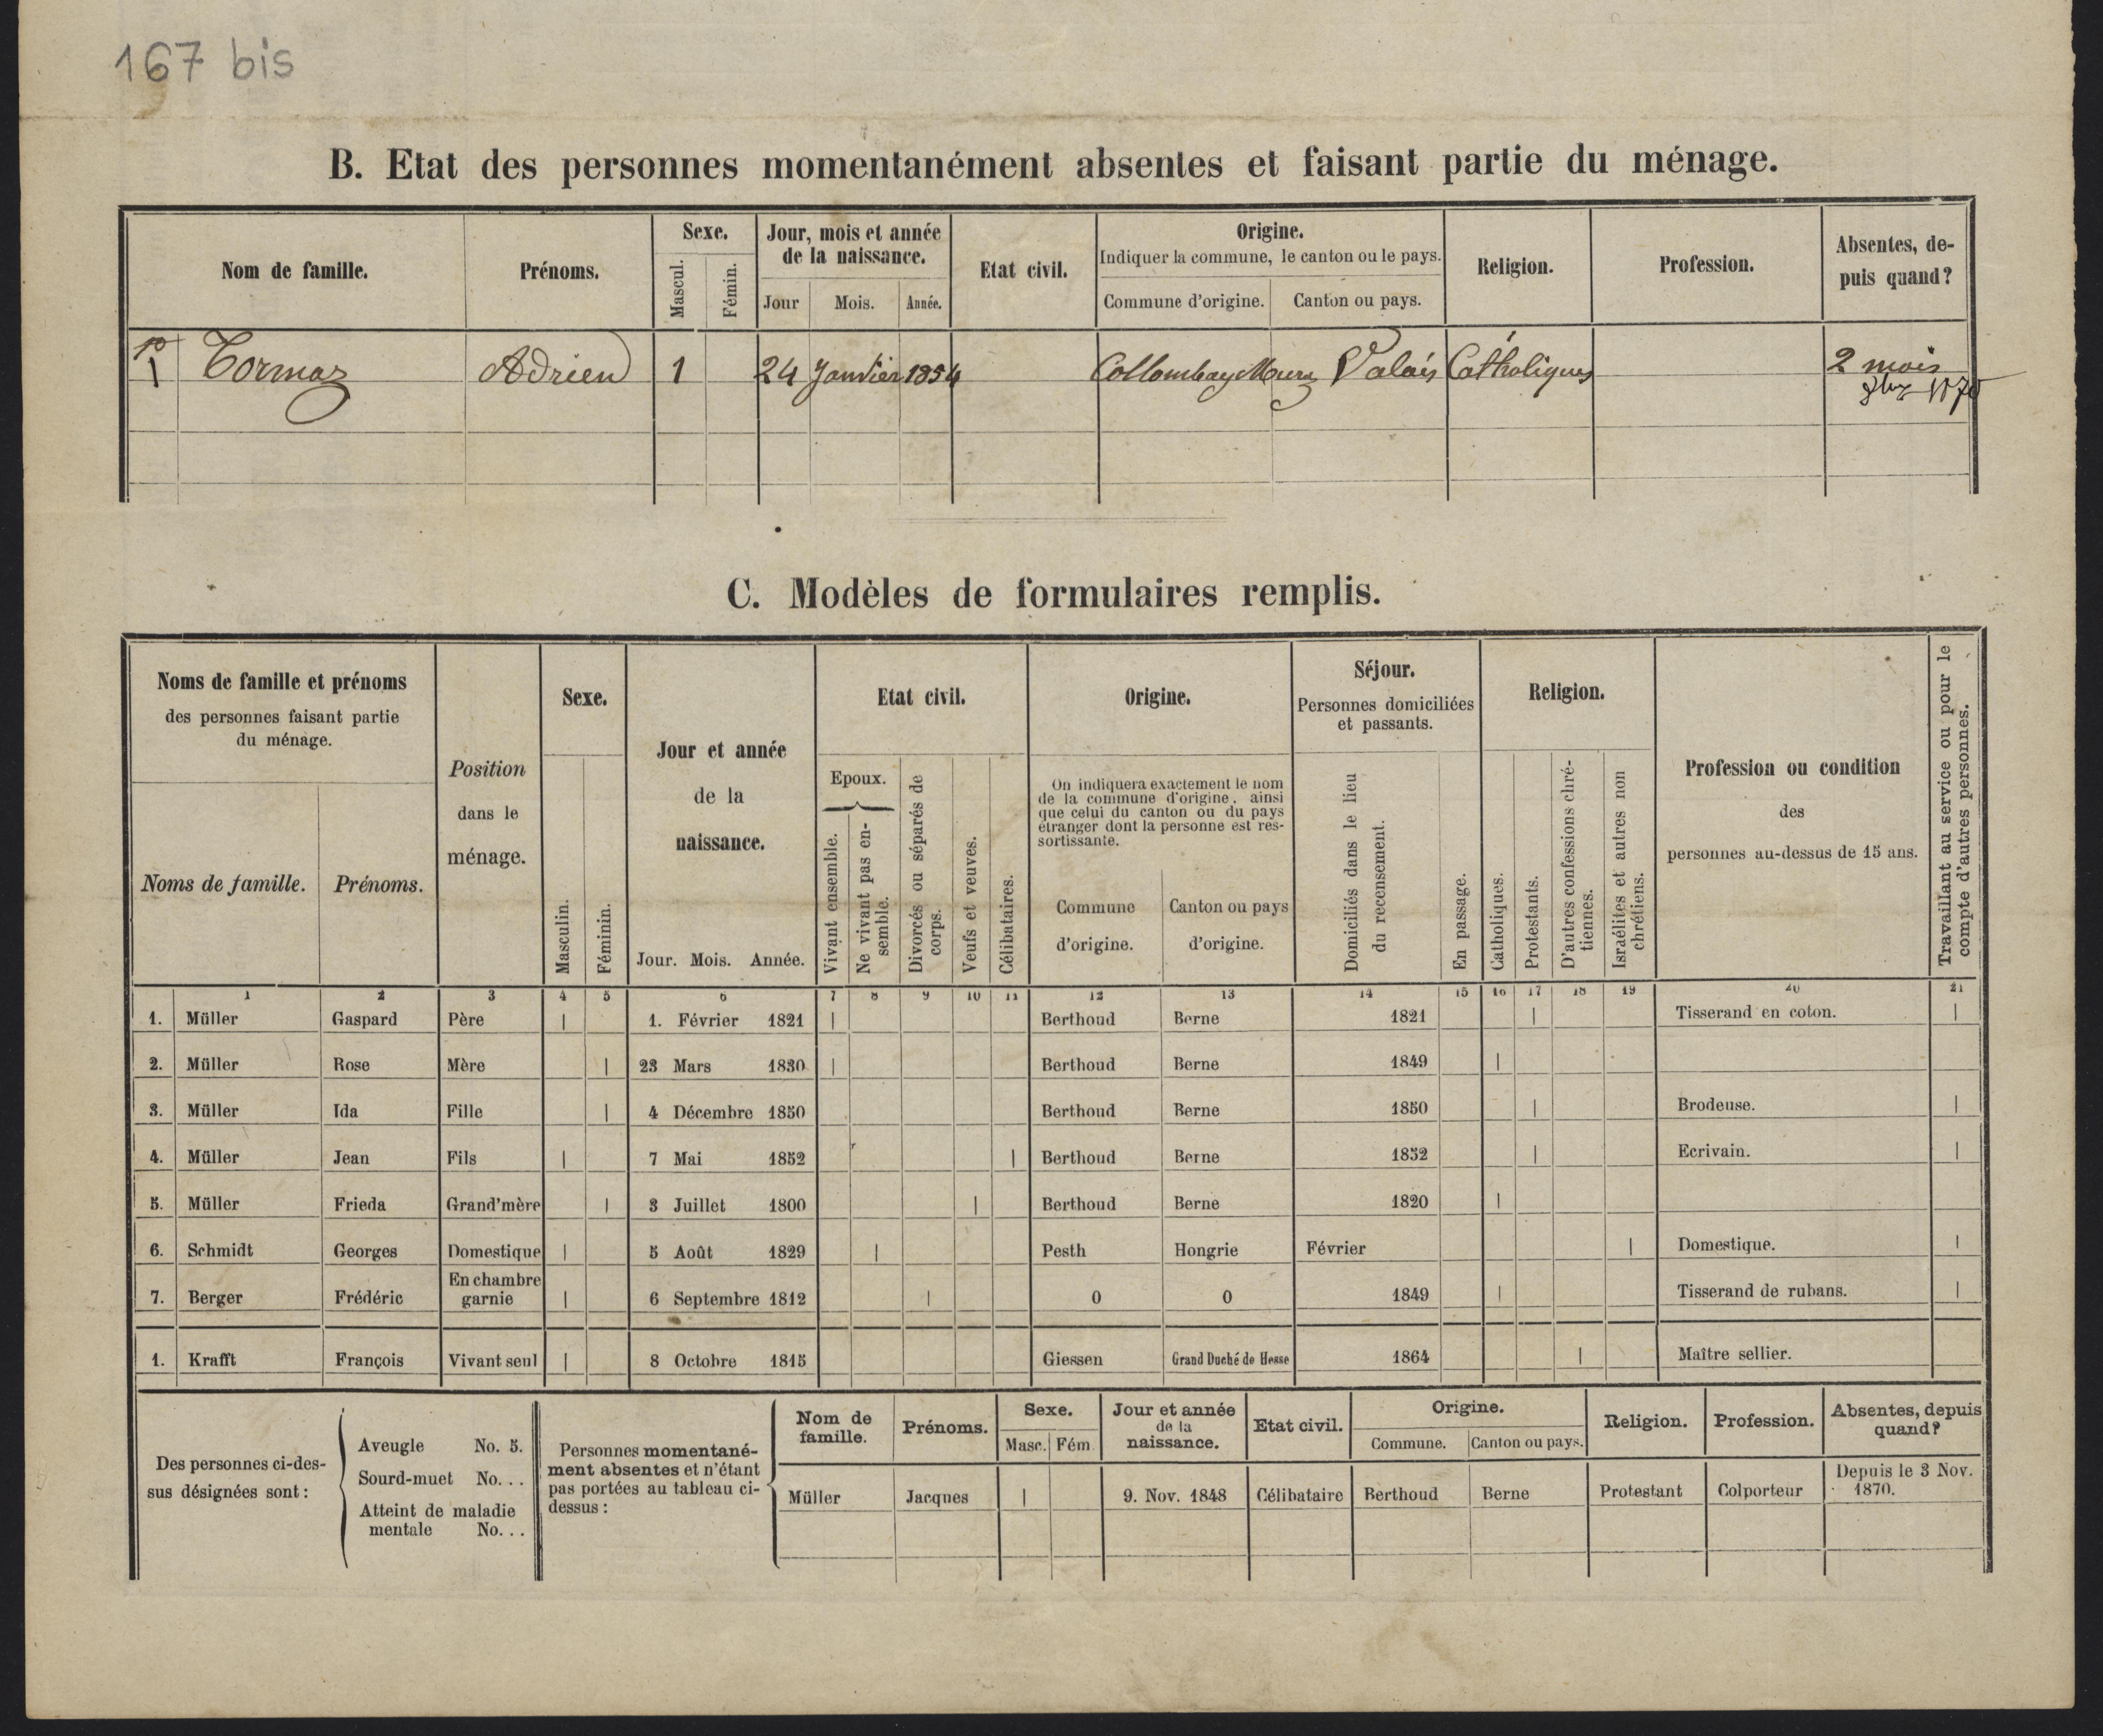 167 bis
B. Etat des personnes momentanément absentes et faisant partie du ménage.
Nom de famille. Prénoms. Sexe. Mascul. Fémin. Jour, mois et année de la naissance. Jour Mois. Année. Etat civil. Origine. Indiquer la commune, le canton ou le pays. Commune d'origine. Canton ou pays. Religion. Profession. Absentes, de-
puis quand?
1 Tormaz Adrien 1 24 Janvier 1854 Collombey Murz Valais Catholiques 2 mois
8bre 1870
C. Modèles de formulaires remplis.
Noms de famille et prénoms
des personnes faisant partie
du ménage.
Noms de famille. Prénoms.
Position
dans le
ménage.
Sexe.
Masculin. Féminin.
Jour et année
de la
naissance.
Jour. Mois. Année.
Etat civil.
Epoux.
Vivant ensemble.
Ne vivant pas en-
semble.
Divorcés ou séparés de
corps.
Veufs et veuves.
Célibataires.
Origine.
On indiquera exactement le nom
de la commune d'origine, ainsi
que celui du canton ou du pays
étranger dont la personne est res-
sortissante.
Commune
d'origine.
Canton ou pays
d'origine.
Séjour.
Personnes domiciliées
et passants.
Domiciliés dans le lieu
du recensement.
En passage.
Religion.
Catholiques.
Protestants.
D'autres confessions chré-
tiennes.
Israélites et autres non
chrétiens.
Profession ou condition
des
personnes au-dessus de 15 ans.
Travaillant au service ou pour le
compte d'autres personnes.
1 2 3 4 5 6 7 8 9 10 11 12 13 14 15 16 17 18 19 20 21
1. Müller Gaspard Père | 1. Février 1821 | Berthoud Berne 1821 | Tisserand en coton. |
2. Müller Rose Mère | 23 Mars 1830 | Berthoud Berne 1849 |
3. Müller Ida Fille | 4 Décembre 1850 Berthoud Berne 1850 | Brodeuse. |
4. Müller Jean Fils | 7 Mai 1852 | Berthoud Berne 1852 | Ecrivain. |
5. Müller Frieda Grand'mère | 3 Juillet 1800 | Berthoud Berne 1820 |
6. Schmidt Georges Domestique | 5 Août 1829 | Pesth Hongrie Février | Domestique. |
7. Berger Frédéric En chambre garnie | 6 Septembre 1812 | 0 0 1849 | Tisserand de rubans. |
1. Krafft François Vivant seul | 8 Octobre 1815 Giessen Grand Duché de Hesse 1864 | Maître sellier.
Des personnes ci-des-
sus désignées sont :
Aveugle No. 5.
Sourd-muet No. . .
Atteint de maladie
mentale No. . .
Personnes momentané-
ment absentes et n'étant
pas portées au tableau ci-
dessus :
Nom de
famille.
Prénoms.
Sexe.
Masc. Fém.
Jour et année
de la
naissance.
Etat civil.
Origine.
Commune. Canton ou pays.
Religion.
Profession.
Absentes, depuis
quand?
Müller Jacques | 9. Nov. 1848 Célibataire Berthoud Berne Protestant Colporteur Depuis le 3 Nov.
1870.